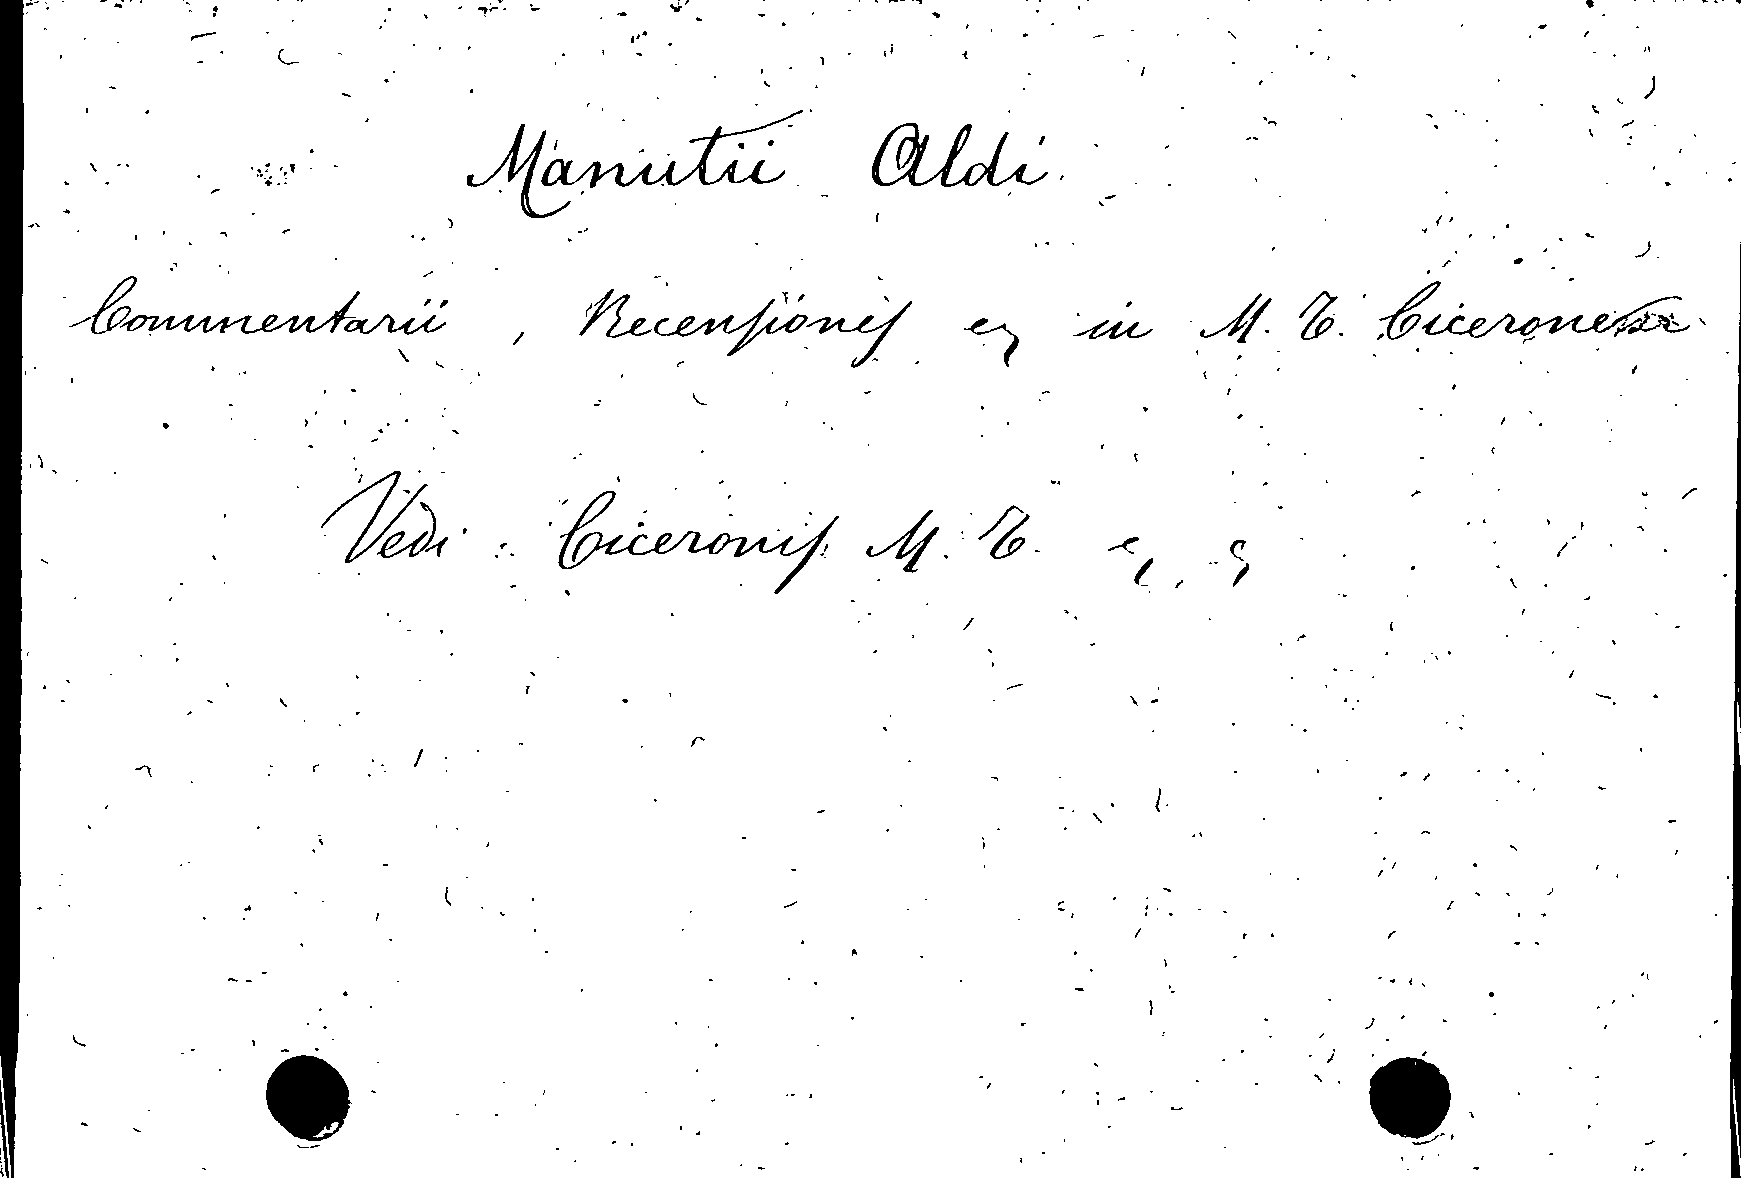 Manutii Aldi
Commentarii, Recensionis in M. T. Ciceronem
Vedi: Ciceronis M. T.